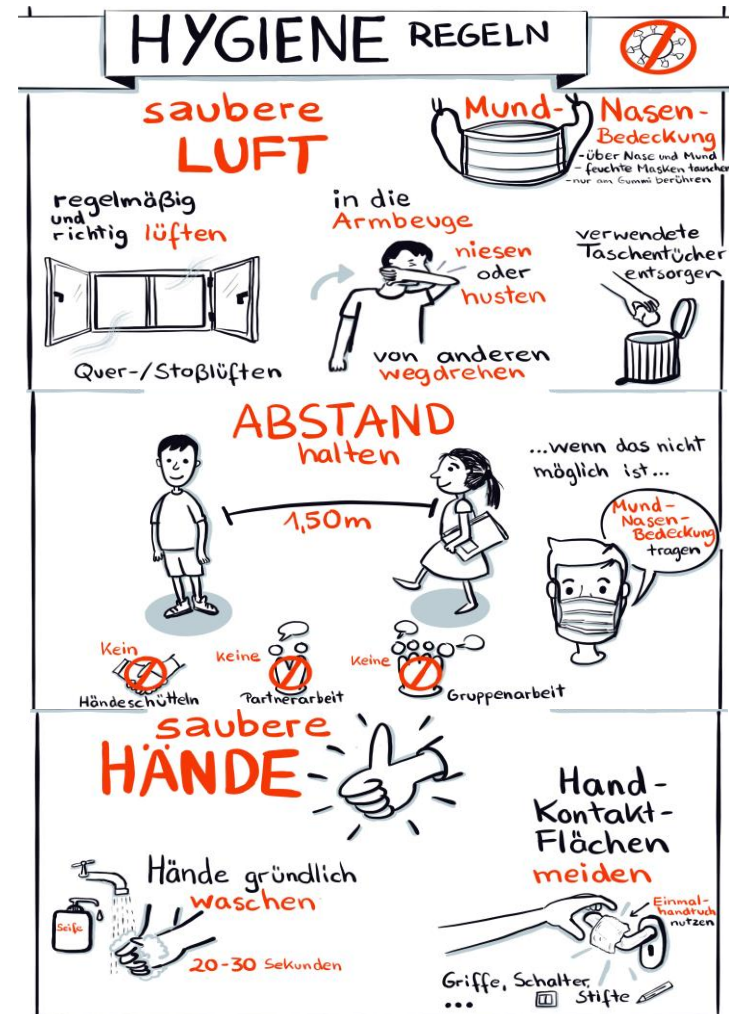 HYGIENE REGELN
saubere
LUFT
Mund-Nasen-
Bedeckung
-über Nase und Mund
-feuchte Masken tauschen
-nur am Gummi berühren
regelmäßig
und
richtig lüften
Quer-/Stoßlüften
in die
Armbeuge
niesen
oder
husten
von anderen
wegdrehen
verwendete
Taschentücher
entsorgen
ABSTAND
halten
1,50m
...wenn das nicht
möglich ist...
Mund-
Nasen-
Bedeckung
tragen
Kein
Händeschütteln
Keine
Partnerarbeit
Keine
Gruppenarbeit
saubere
HÄNDE
Hände gründlich
waschen
Seife
20-30 Sekunden
Hand-
Kontakt-
Flächen
meiden
Einmal-
handtuch
nutzen
Griffe, Schalter,
... Stifte